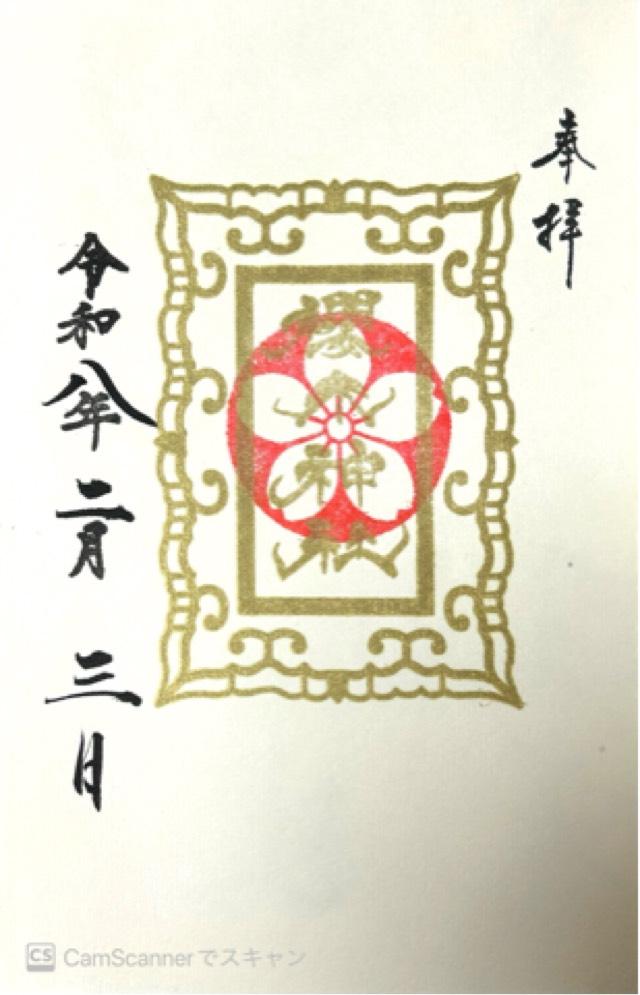 奉拝
櫻木神社
令和八年二月三日
CS CamScannerでスキャン